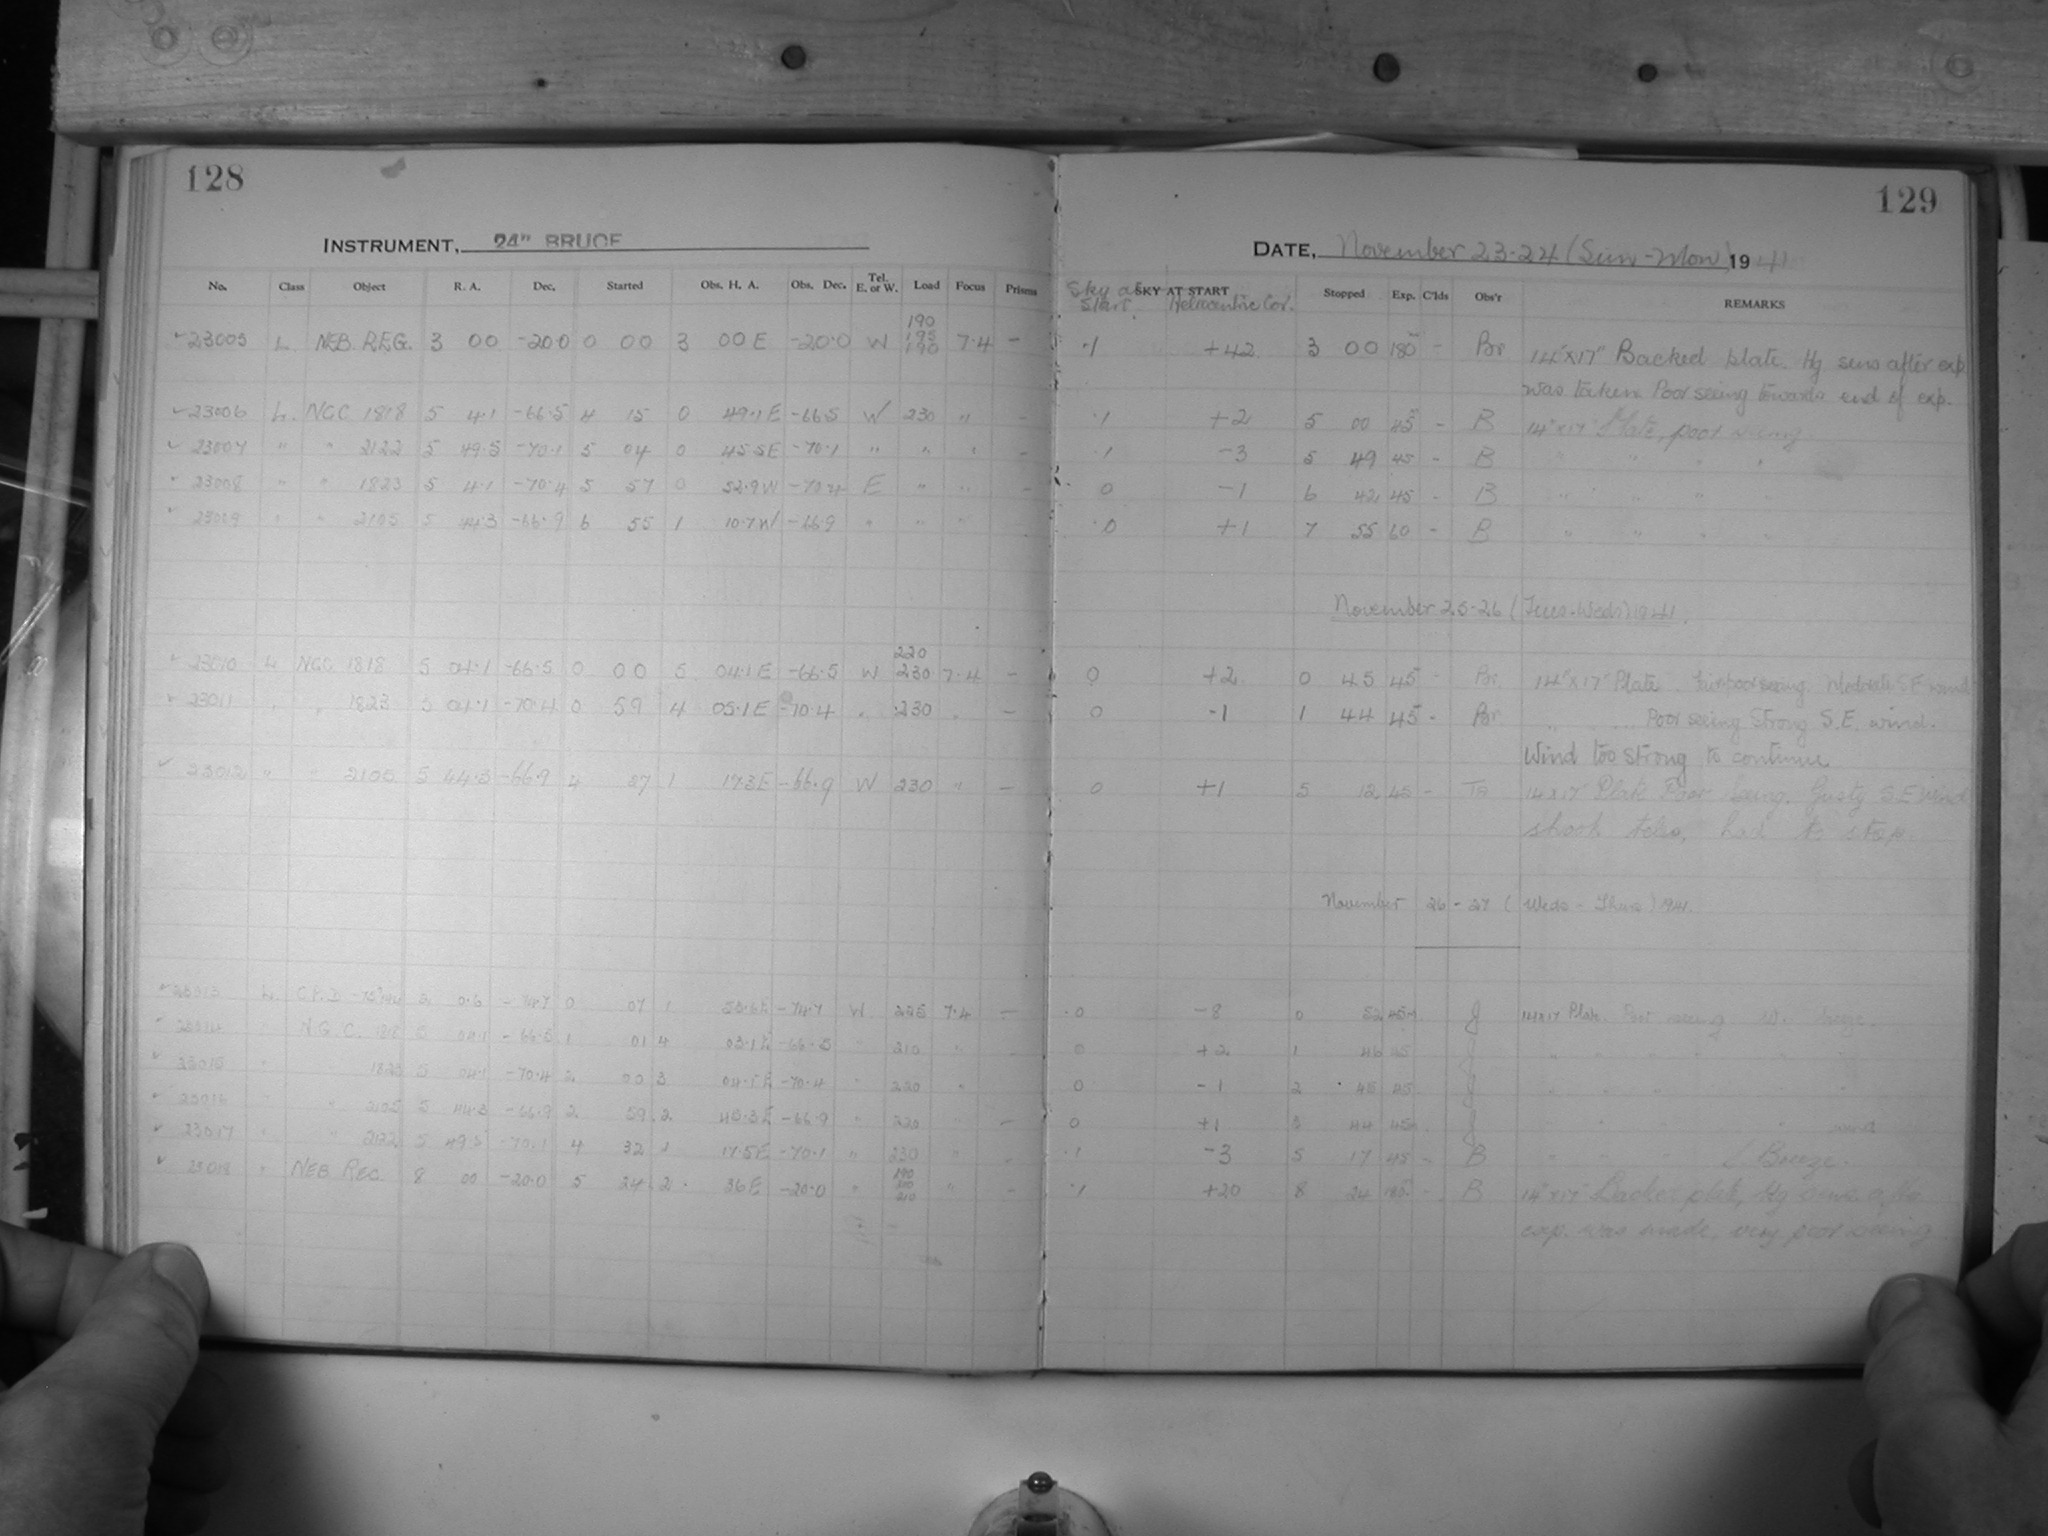 128
129
INSTRUMENT, 24" BRUCE
DATE, November 23-24 (Sun-Mon) 1941
No. Class Object R. A. Dec. Started Obs. H. A. Obs. Dec. Tel. E. or W. Load Focus Prisms Sky at Start SKY AT START Heliocentric Cor. Stopped Exp. C'lds Obs'r REMARKS
190
195
23005 L NEB. REG. 3 00 -20.0 0 00 3 00 E -20.0 W 190 7.4 - .1 +42 3 00 180 - Br 14"x17" Backed plate. Hg sens after exp
was taken. Poor seeing towards end of exp.
23006 L. NGC 1818 5 4.1 -66.5 4 15 0 49.1 E -66.5 W 230 " - .1 +2 5 00 45 - B 14"x17" Plate, poor seeing.
23007 " " 2122 5 49.5 -70.1 5 04 0 45.5 E -70.1 " " " - .1 -3 5 49 45 - B " " " "
23008 " " 1823 5 4.1 -70.4 5 57 0 52.9 W -70.4 E " " - 0 -1 6 42 45 - B " " " "
23009 " " 2105 5 44.3 -66.9 6 55 1 10.7 W -66.9 " " " .0 +1 7 55 60 - B " " " "
November 25-26 (Tues-Weds) 1941.
220
23010 L NGC 1818 5 04.1 -66.5 0 00 5 04.1 E -66.5 W 230 7.4 - 0 +2 0 45 45 - Br. 14"x17" Plate. seeing. Moderate S.E wind
23011 " " 1823 5 04.1 -70.4 0 59 4 05.1 E -70.4 " 230 " - 0 -1 1 44 45 - Br " Poor seeing Strong S.E. wind.
Wind too strong to continue
23012 " " 2105 5 44.3 -66.9 4 27 1 17.3 E -66.9 W 230 " - 0 +1 5 12 45 - 14x17 Plate Poor Seeing. Gusty S.E wind
shook teles, had to stop.
November 26-27 (Weds-Thurs) 1941.
23013 L. 2 0.6 -74.7 0 07 1 53.6 E -74.7 W 225 7.4 - .0 -8 0 52 45 J 14x17 Plate. Poor seeing
23014 N.G.C. 1818 5 04.1 -66.5 1 01 4 03.1 E -66.5 " 210 " 0 +2 1 46 45
23015 " 1823 5 04.1 -70.4 2 00 3 04.1 E -70.4 " 220 " 0 -1 2 45 45
23016 " " 2105 5 44.3 -66.9 2 59 2 45.3 E -66.9 " 220 " - 0 +1 3 44 45 " " " " wind
23017 " " 2122 5 49.5 -70.1 4 32 1 17.5 E -70.1 " 230 " - .1 -3 5 17 45 - B " " " Breeze.
190
210
23018 " NEB REG. 8 00 -20.0 5 24 2 36 E -20.0 " 210 " - .1 +20 8 24 180 - B 14"x17" Backed plate, Hg sens after
exp. was made, very poor seeing